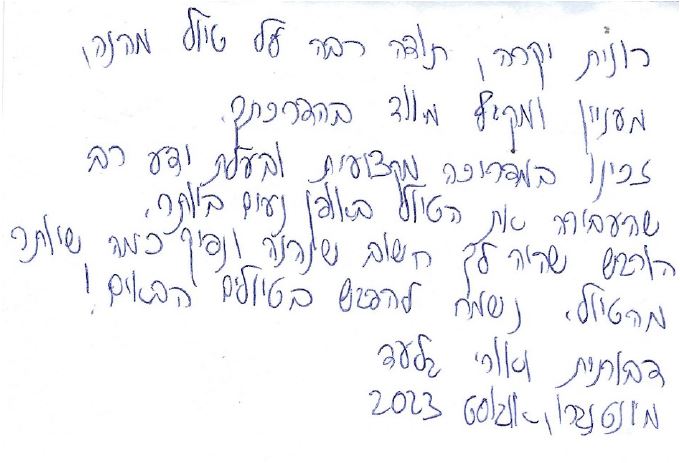 רונית יקרה, תודה רבה על טיול מהנה,
מעניין ומקיף מאוד בהדרכתך.
זכינו במדריכה מקצועית ובעלת ידע רב
שהעבירה את הטיול באופן נעים ביותר.
הורגש שהיה לך חשוב שנהנה ונפיק כמה שיותר
מהטיול. נשמח להפגש בטיולים הבאים!
דבורנית ואורי גלעד
מונטנגרו, אוגוסט 2023